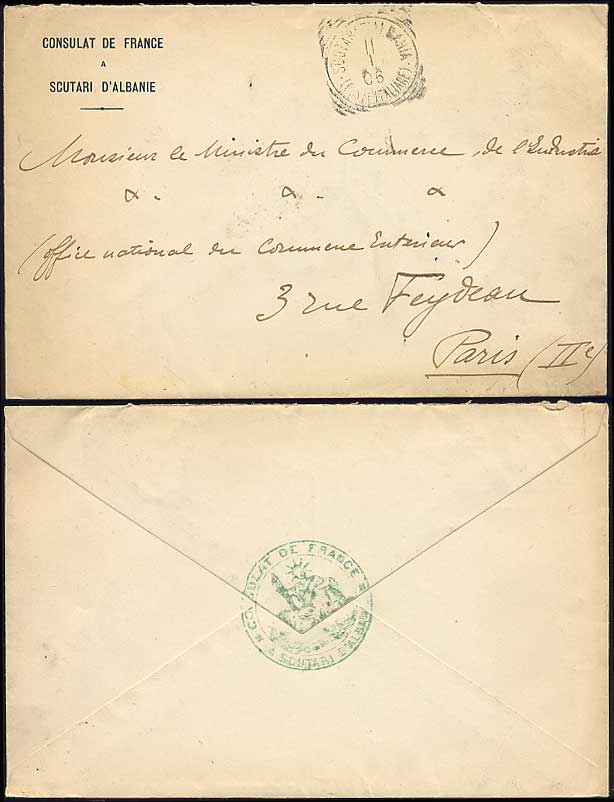 CONSULAT DE FRANCE
A
SCUTARI D'ALBANIE
SCUTARI D'ALBANIA
11
1
06
Monsieur le Ministre du Commerce, de l'Industrie
&. &. &
(Office national du Commerce Extérieur)
3 rue Feydeau
Paris (IIe)
CONSULAT DE FRANCE
A SCUTARI D'ALBANIE